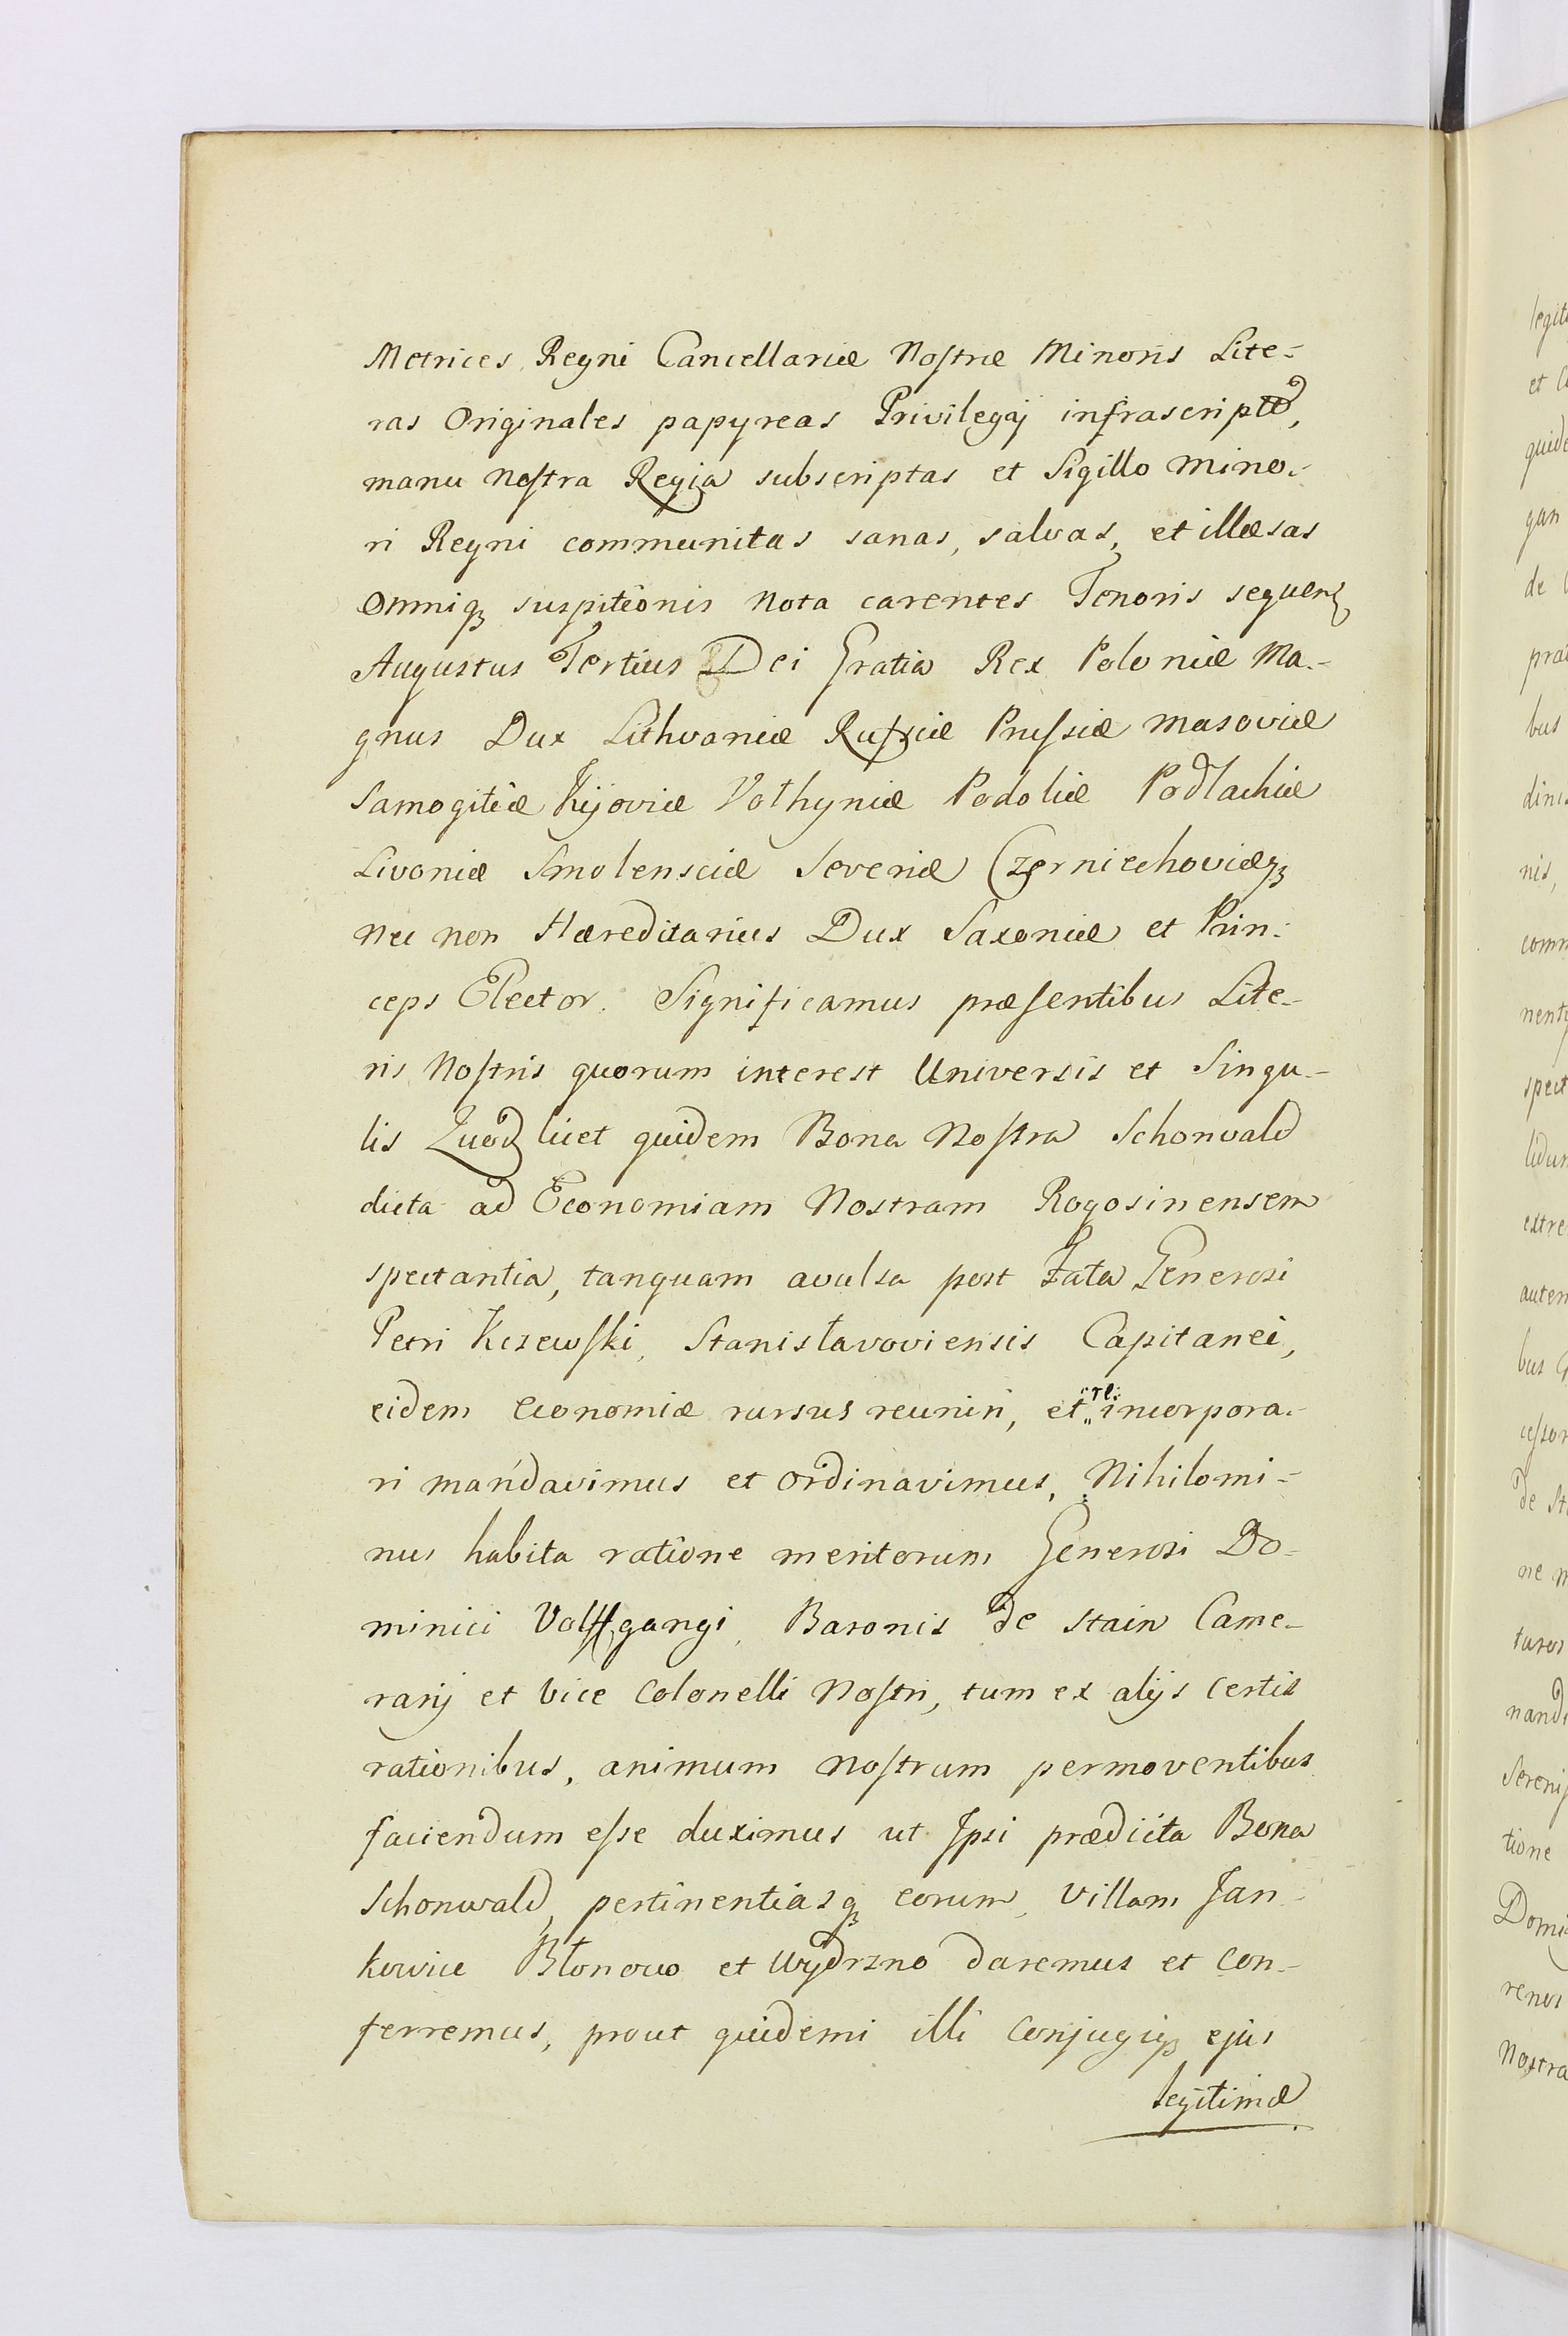 Metrices Regni Cancellariæ Nostræ Minoris Lite-
ras Originales papyreas Privilegij infrascripti,
manu Nostra Regia subscriptas et Sigillo Mino-
ri Regni communitas sanas, salvas, et illæsas
Omniq3 suspitionis nota carentes Tenoris sequen
Augustus Tertius Dei Gratia Rex Poloniæ Ma-
gnus Dux Lithvaniæ Russiæ Prussiæ Masoviæ
Samogitiæ Kijoviæ Vołhyniæ Podoliæ Podlachiæ
Livoniæ Smolensciæ Severiæ Czerniechoviæq3
nec non Hæreditarius Dux Saxoniæ et Prin-
ceps Elector. Significamus præsentibus Lite-
ris Nostris quorum interest Universis et Singu-
lis Quod licet quidem Bona Nostra Schonvald
dicta ad Economiam Nostram Rogosinensem
spectantia, tanquam avulsa post Fata Generosi
Petri Kczewski, Stanisłavoviensis Capitanei,
eidem Economiæ rursus reuniri, et re: incorpora-
ri mandavimus et ordinavimus, Nihilomi-
nus habita ratione meritorum Generosi Do-
minici Volffgangi, Baronis de Stain Came-
rarij et Vice Colonelli Nostri, tum ex alijs certis
rationibus, animum Nostrum permoventibus
faciendum esse duximus ut Ipsi prædicta Bona
Schonwald, pertinentiasq3 eorum, Villam Jan-
kowice Błonowo et Wydrzno daremus et con-
ferremus, prout quidemi illi Conjugiq3 ejus
legitimæ
legit
et C
quide
gan
de
præ
bus
dini
nis,
comm
nent
spect
lidum
extre
autem
bus
cessor
de St
ne
turos
nand
Sereni
tione
Domi
renos
Nostra